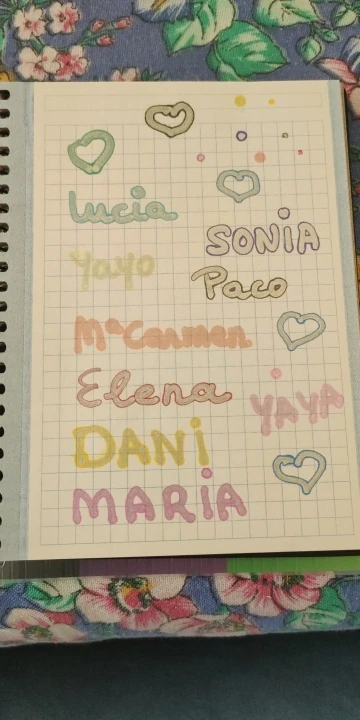 Lucia
SONiA
Yayo
Paco
MªCarmen
Elena
YAYA
DANi
MARiA